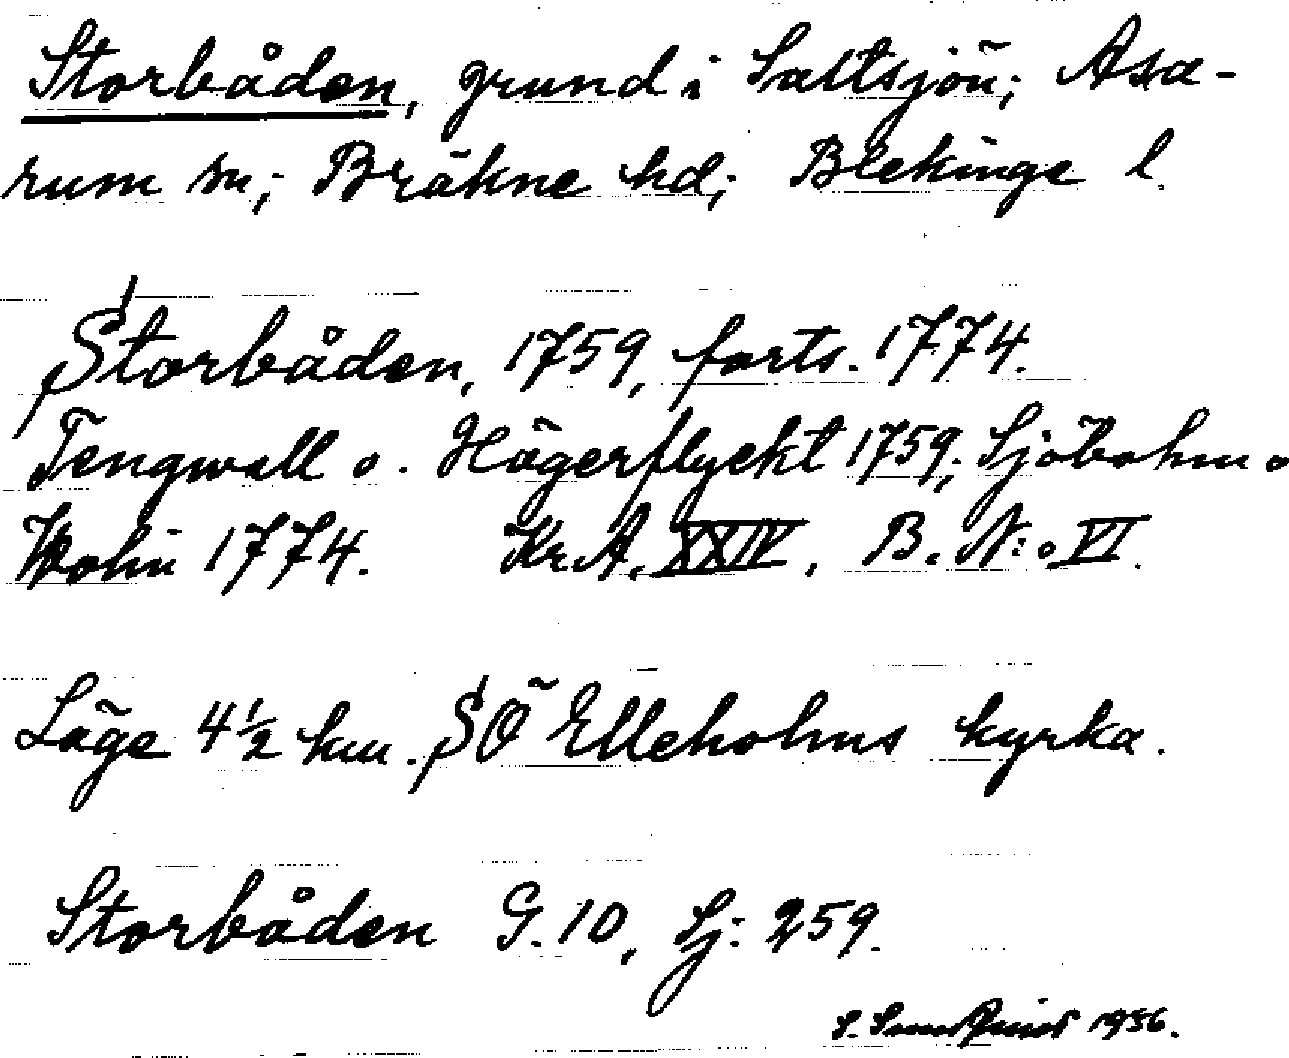 Storbåden, grund i Saltsjön; Asa-
rum sn; Bräkne hd; Blekinge l.
Storbåden, 1759, forts. 1774.
Tengwall o. Hägerflyckt 1759; Sjöbohm o
Wolin 1774. Kr.A. XXIV, B. N:o VI.
Läge 4½ km. SÖ Elleholms kyrka.
Storbåden G. 10, Sj: 259.
S. 1936.